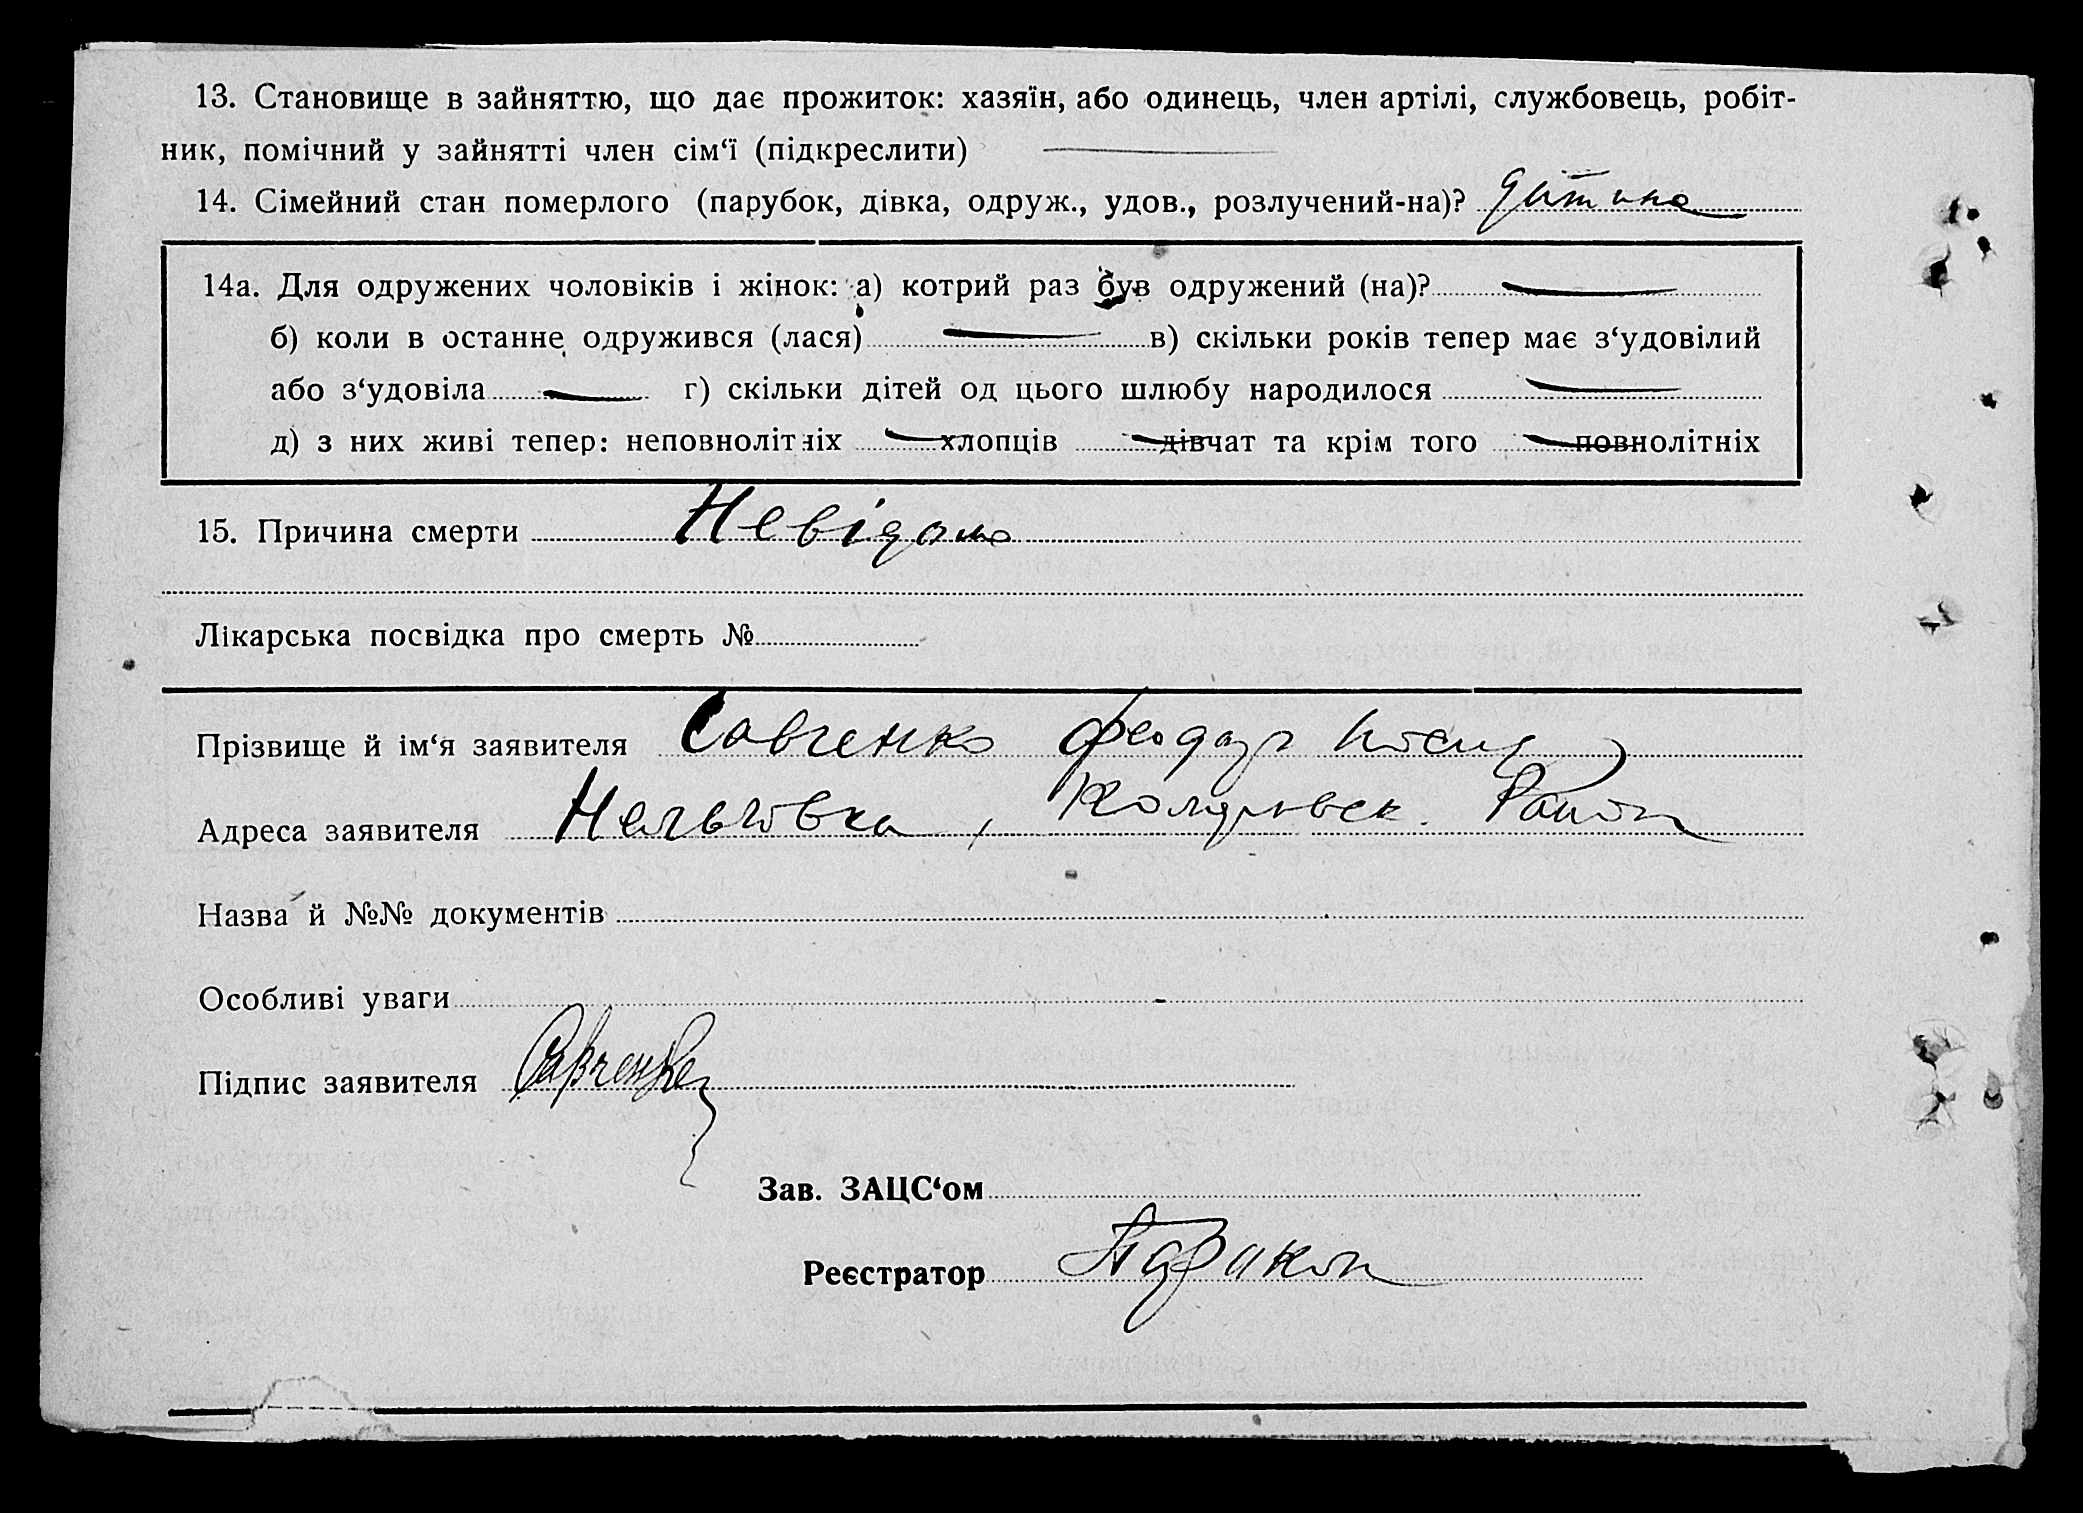 13. Становище в зайняттю, що дає прожиток: хазяїн, або одинець, член артілі, службовець, робіт-
ник, помічний у зайнятті член сім‘ї (підкреслити)
14. Сімейний стан померлого (парубок, дівка, одруж., удов., розлучений-на)? дитина
14а. Для одружених чоловіків і жінок: а) котрий раз був одружений (на)?
б) коли в останне одружився (лася) в) скільки років тепер має з‘удовілий
або з‘удовіла г) скільки дітей од цього шлюбу народилося
д) з них живі тепер: неповнолітніх хлопців дівчат та крім того повнолітніх
15. Причина смерти Невідома
Лікарська посвідка про смерть №
Прізвище й ім‘я заявителя Савченко Феодор
Адреса заявителя Район
Назва й №№ документів
Особливі уваги
Підпис заявителя Савченко
Зав. ЗАЦС‘ом
Реєстратор